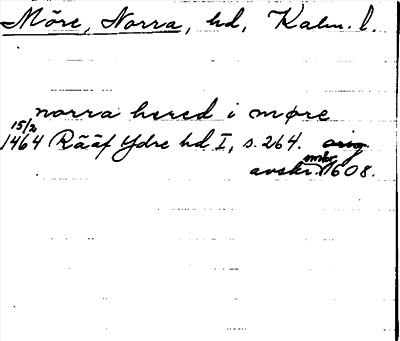 Möre, Norra, hd, Kalm. l.
norra hered i møre
15/2
1464 Rääf Ydre hd I, s. 264. orig.
avskr. 1608.